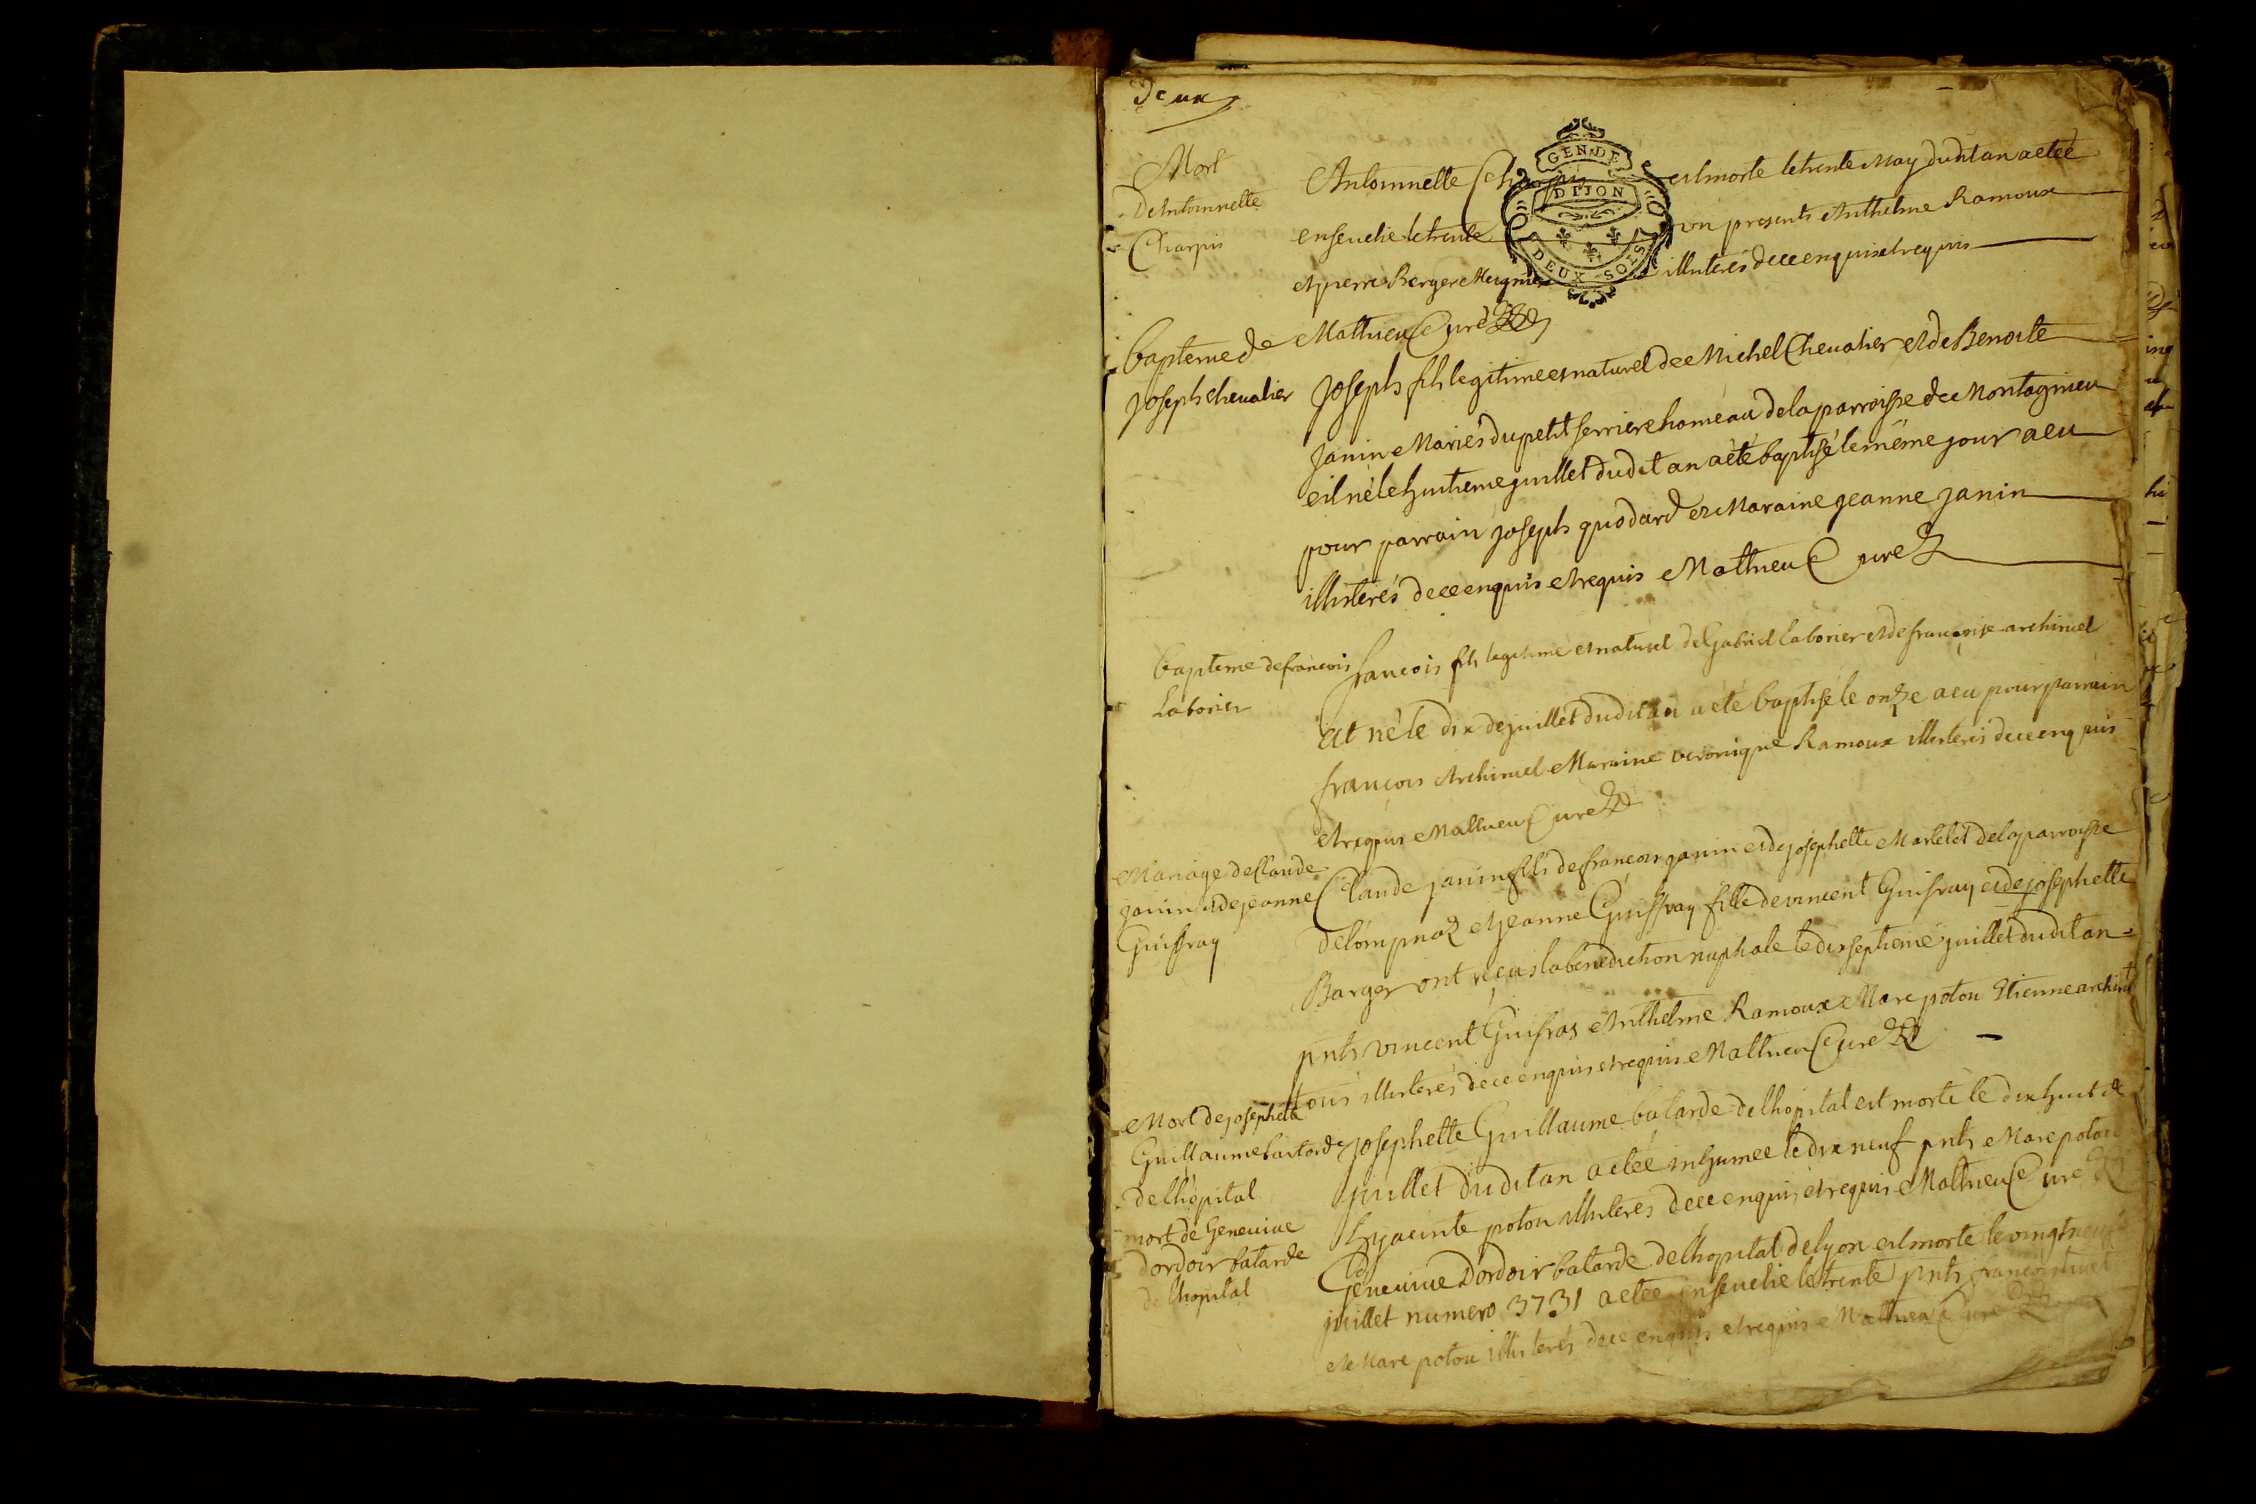 Deux
Mort
D'Antoinnette
Charpis
Antoinnette est morte le trente May dudit an a etéé
ensevelie le trente presents Anthelme Ramoux
et pierre Berger Meugnier illiterés de ce enquis et requis
Mathieu Curé
GEN. DE
DIJON
DEUX SOLS
bapteme de
joseph chevalier
joseph fils legitime et naturel de Michel Chevalier et de Benoite
janin Mariés du petit serriere homeau de la parroisse de Montagnieu
est né le huitieme juillet dudit an a èté baptisé le même jour a eu
pour parrain joseph guodard et Maraine jeanne janin
illiterés de ce enquis et requis Mathieu Curé
bapteme de francois
Laborier
francois fils legitime et naturel de Gabriel Laborier et de françoise archirel
est né le dix de juillet dudit an a eté baptisé le onze a eu pour parrain
françois Archirel Maraine veronique Ramoux illiterés de ce enquis
et requis Mathieu Curé
Mariage de Claude
janin et de jeanne
Guiffray
Claude janin fils de francois janin et de josephette Martelet de la parroisse
de lompnaz et jeanne Guiffray fille de vincent Guifray et de josephette
Barger ont reçus la benediction nuptiale le dix septieme juillet dudit an
pnts vincent Guifray Anthelme Ramoux Marc potou Etienne archirel
tous illiterés de ce enquis et requis Mathieu Curé
Mort de josephette
Guillaume batarde
de lhôpital
josephette Guillaume batarde de lhopital est morte le dix huit de
juillet dudit an a etée inhumée le dix neuf pnts Marc potou
hyacinte potou illiterés de ce enquis et requis Mathieu Curé
mort de Genevive
dordoir batarde
de lhopital
Genevive Dordoir batarde de lhopital de lyon est morte le vingt neuf
juillet numero 3731 a etée ensevelie le trente pnts francois
et Marc potou illiterés de ce enquis et requis Mathieu Curé